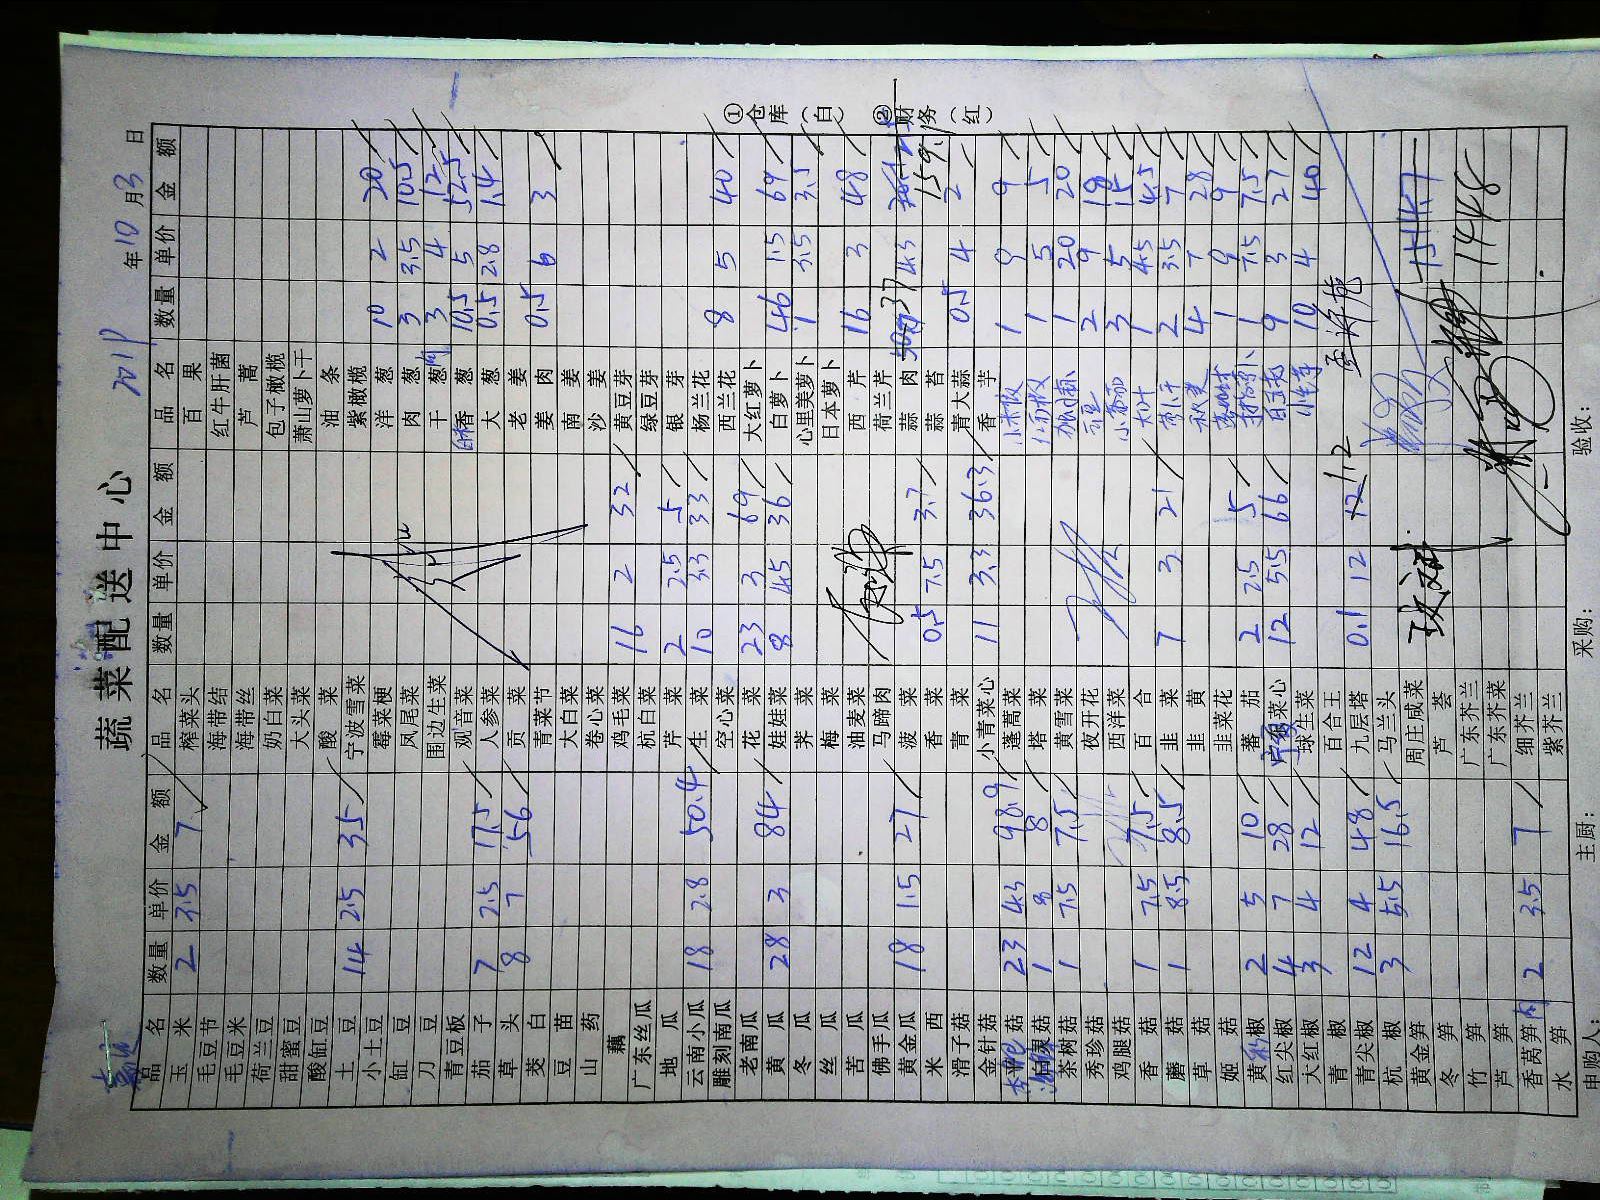 蔬菜配送中心
年10月3日
品名 数量 单价 金额 品名 数量 单价 金额 品名 数量 单价 金额
玉米 2 3.5 7 榨菜头 百果
毛豆节 海带结 红牛肝菌
毛豆米 海带丝 芦蒿
荷兰豆 奶白菜 包子橄榄
甜蜜豆 大头菜 萧山萝卜干
酸缸豆 酸菜 油条
土豆 14 2.5 35 宁波雪菜 紫橄榄
小土豆 霉菜梗 洋葱 10 2 20
缸豆 凤尾菜 肉葱 3 3.5 10.5
刀豆 围边生菜 干葱 3 4 12
青豆板 观音菜 香葱 10.5 5 52.5
茄子 7 2.5 17.5 人参菜 大葱 0.5 2.8 1.4
草头 8 7 56 贡菜 老姜
茭白 青菜节 姜肉 0.5 6 3
豆苗 大白菜 南姜
山药 卷心菜 沙姜
藕 鸡毛菜 16 2 32 黄豆芽
广东丝瓜 杭白菜 绿豆芽
地瓜 芹菜 2 2.5 5 银芽
云南小瓜 18 2.8 50.4 生菜 10 3.3 33 杨兰花
雕刻南瓜 空心菜 西兰花 8 5 40
老南瓜 花菜 23 3 69 大红萝卜
黄瓜 28 3 84 娃娃菜 8 4.5 36 白萝卜 46 1.5 69
冬瓜 荠菜 心里美萝卜 1 3.5 3.5
丝瓜 梅菜 日本萝卜
苦瓜 油麦菜 西芹 16 3 48
佛手瓜 马蹄肉 荷兰芹
黄金瓜 18 1.5 27 菠菜 蒜肉 37 4.3 159.1
米西 香菜 0.5 7.5 3.7 蒜苔
滑子菇 青菜 青大蒜 0.5 4 2
金针菇 小青菜心 11 3.3 36.3 香芋
菇 23 4.3 98.9 蓬蒿菜 小米椒 1 9 9
菇 1 8 8 塔菜 1 5 5
茶树菇 1 7.5 7.5 黄雪菜 1 20 20
秀珍菇 夜开花 2 9 18
鸡腿菇 西洋菜 3 5 15
香菇 1 7.5 7.5 百合 1 4.5 4.5
磨菇 1 8.5 8.5 韭菜 7 3 21 2 3.5 7
草菇 韭黄 4 7 28
姬菇 韭菜花 1 9 9
黄椒 2 5 10 番茄 2 2.5 5 1 7.5 7.5
红尖椒 4 7 28 菜心 12 5.5 66 9 3 27
大红椒 3 4 12 球生菜 10 4 40
青椒 百合王
青尖椒 12 4 48 九层塔 0.1 12 1.2
杭椒 3 5.5 16.5 马兰头
黄金笋 周庄咸菜
冬笋 芦荟
竹笋 广东芥兰 1448
芦笋 广东芥菜
香莴笋肉 2 3.5 7 细芥兰
水笋 紫芥兰
申购人： 主厨： 采购： 验收：
①仓库（白） ②财务（红）